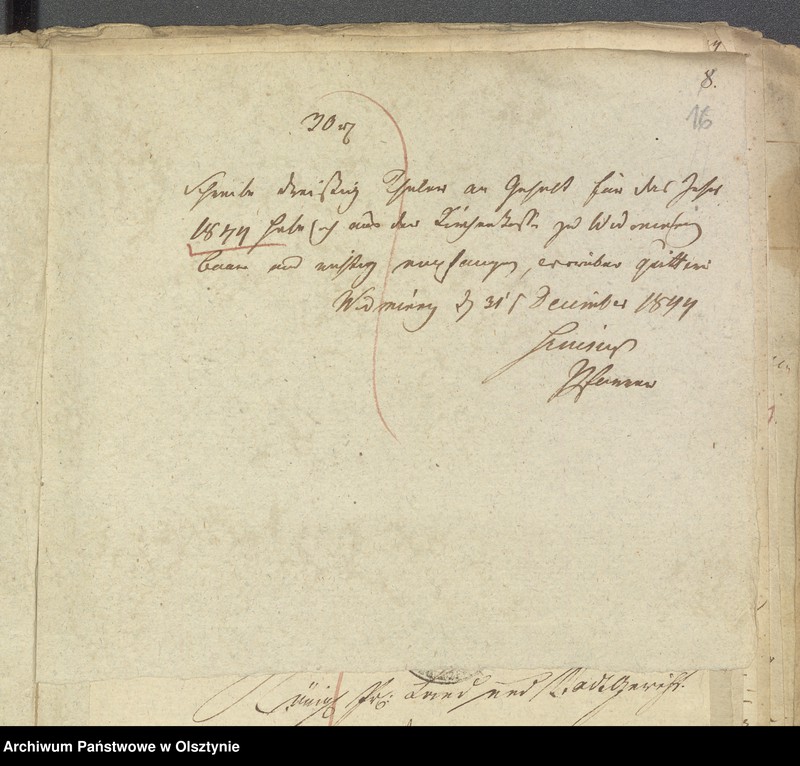 8.
16
30 rtl
Schreibe dreißig Thaler an Gehalt für das Jahr
1844 habe ich aus der Kirchenkasse zu Widminnen
baar und richtig empfangen, worüber quittire
Widminnen d 31t December 1844
Pfarrer
Königl. Pr. Land und Stadt Gericht.
Archiwum Państwowe w Olsztynie